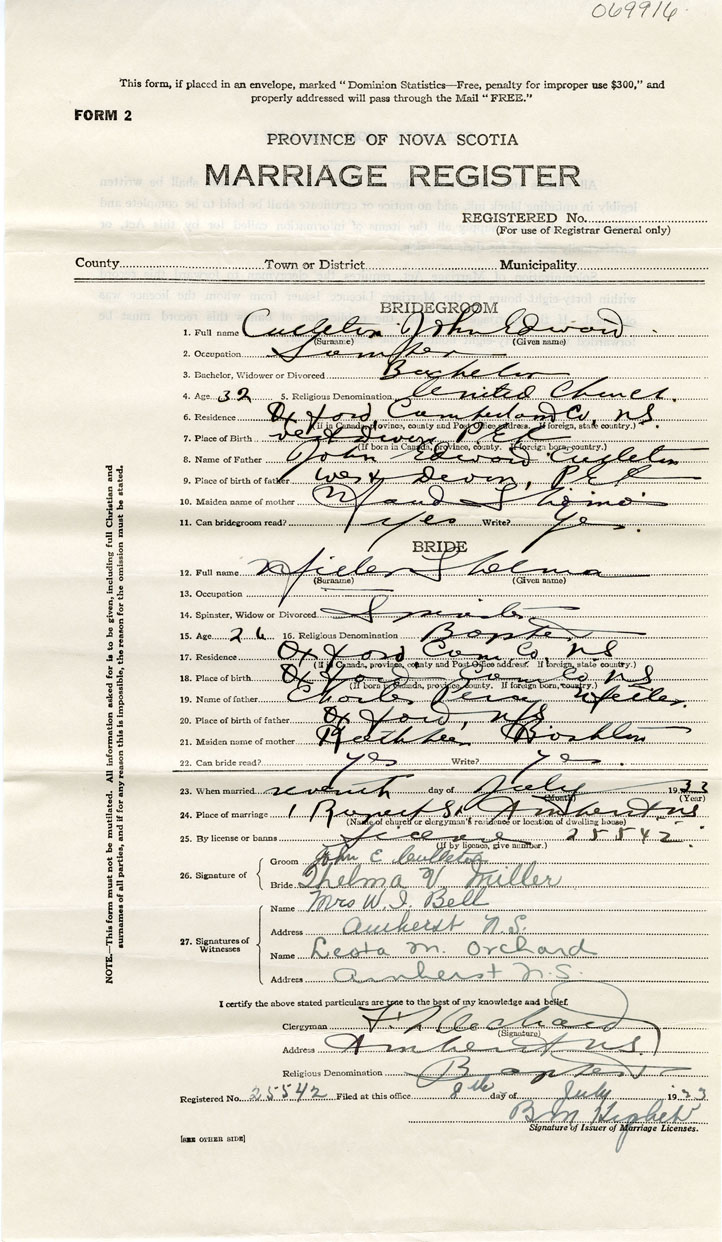 069916
This form, if placed in an envelope, marked "Dominion Statistics—Free, penalty for improper use $300," and
properly addressed will pass through the Mail "FREE."
FORM 2
PROVINCE OF NOVA SCOTIA
MARRIAGE REGISTER
REGISTERED No.
(For use of Registrar General only)
County Town or District Municipality
BRIDEGROOM
1. Full name John Edward
(Surname) (Given name)
2. Occupation
3. Bachelor, Widower or Divorced Bachelor
4. Age 32 5. Religious Denomination United Church
6. Residence Oxford, Cumberland Co, NS
(If in Canada, province, county and Post Office address. If foreign, state country.)
7. Place of Birth West Devon PEI
(If born in Canada, province, county. If foreign born, country.)
8. Name of Father John Edward
9. Place of birth of father West Devon, PEI
10. Maiden name of mother Maud
11. Can bridegroom read? Yes Write? Yes
BRIDE
12. Full name Miller Thelma
(Surname) (Given name)
13. Occupation
14. Spinster, Widow or Divorced Spinster
15. Age 26 16. Religious Denomination Baptist
17. Residence Oxford Cum Co, NS
(If in Canada, province, county and Post Office address. If foreign, state country.)
18. Place of birth Oxford Cum Co NS
(If born in Canada, province, county. If foreign born, country.)
19. Name of father Charles Percy Miller
20. Place of birth of father Oxford, NS
21. Maiden name of mother Kathleen
22. Can bride read? yes Write? yes
23. When married seventh day of July 1933
(Month) (Year)
24. Place of marriage 1 Rupert St Amherst NS
(Name of church or clergyman's residence or location of dwelling house)
25. By license or banns license 25542
(If by licence, give number.)
26. Signature of
Groom John E
Bride Thelma V Miller
27. Signatures of Witnesses
Name Mrs W. I. Bell
Address Amherst N.S.
Name Leota M. Orchard
Address Amherst N.S.
I certify the above stated particulars are true to the best of my knowledge and belief.
Clergyman Orchard
(Signature)
Address Amherst NS
Religious Denomination Baptist
Registered No. 25542 Filed at this office 8th day of July 1933
Signature of Issuer of Marriage Licenses.
[SEE OTHER SIDE]
NOTE.—This form must not be mutilated. All information asked for is to be given, including full Christian and
surnames of all parties, and if for any reason this is impossible, the reason for the omission must be stated.